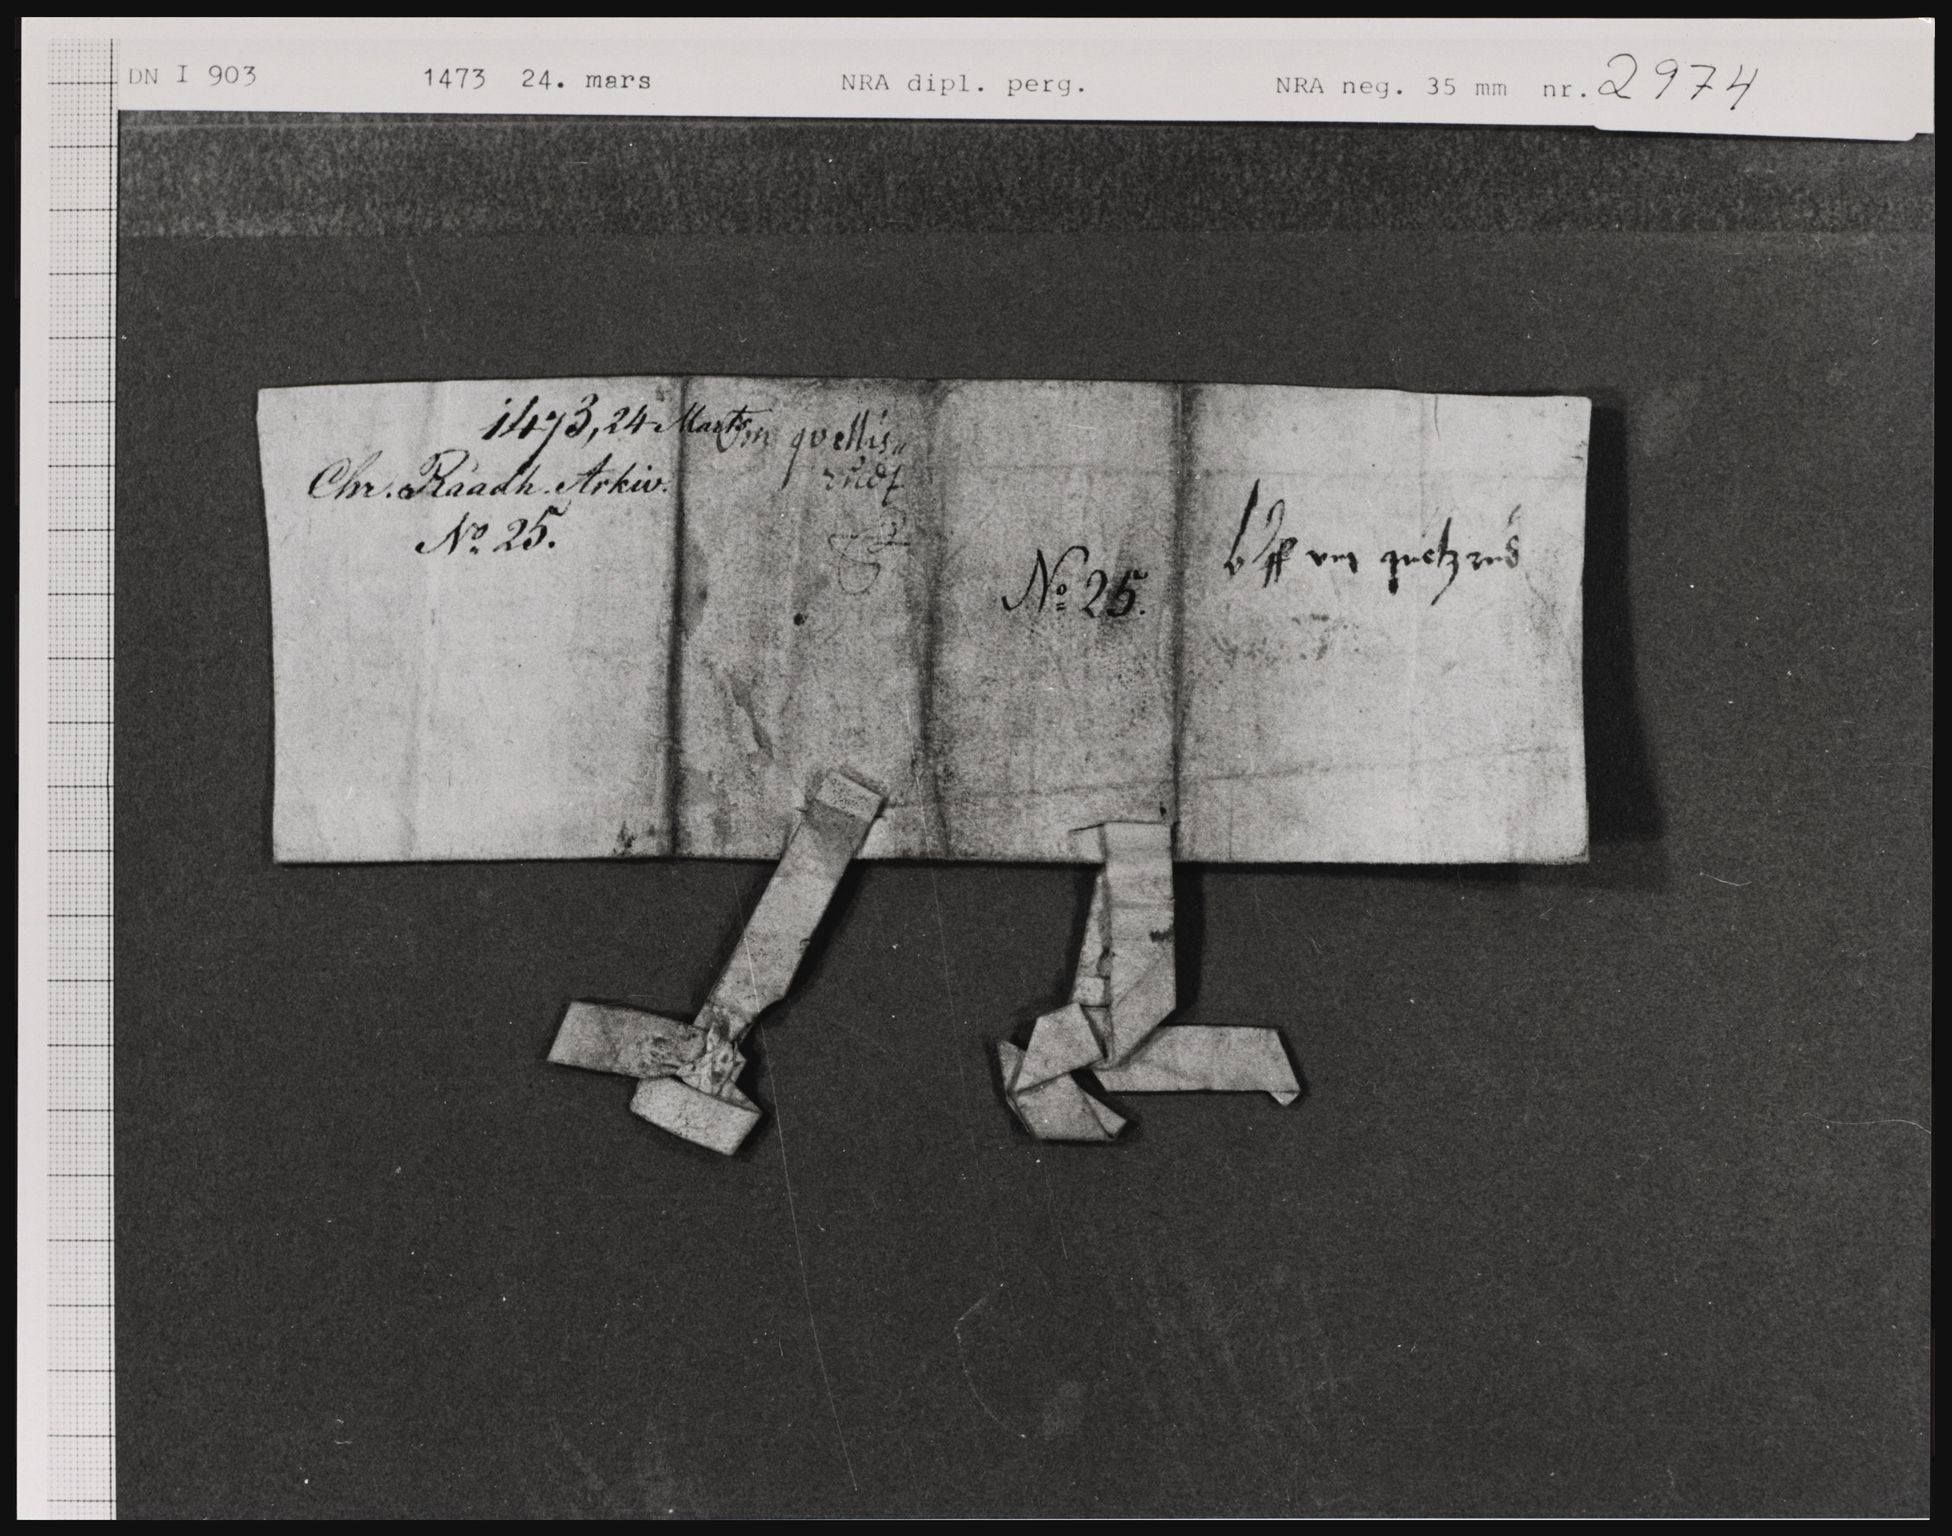 DN I 903 1473 24. mars NRA dipl. perg. NRA neg. 35 mm nr. 2974
1473, 24 Marts.
Chr. Raadh. Arkiv.
No. 25.
Om qvellis„
rudt
No. 25.
Bff vm